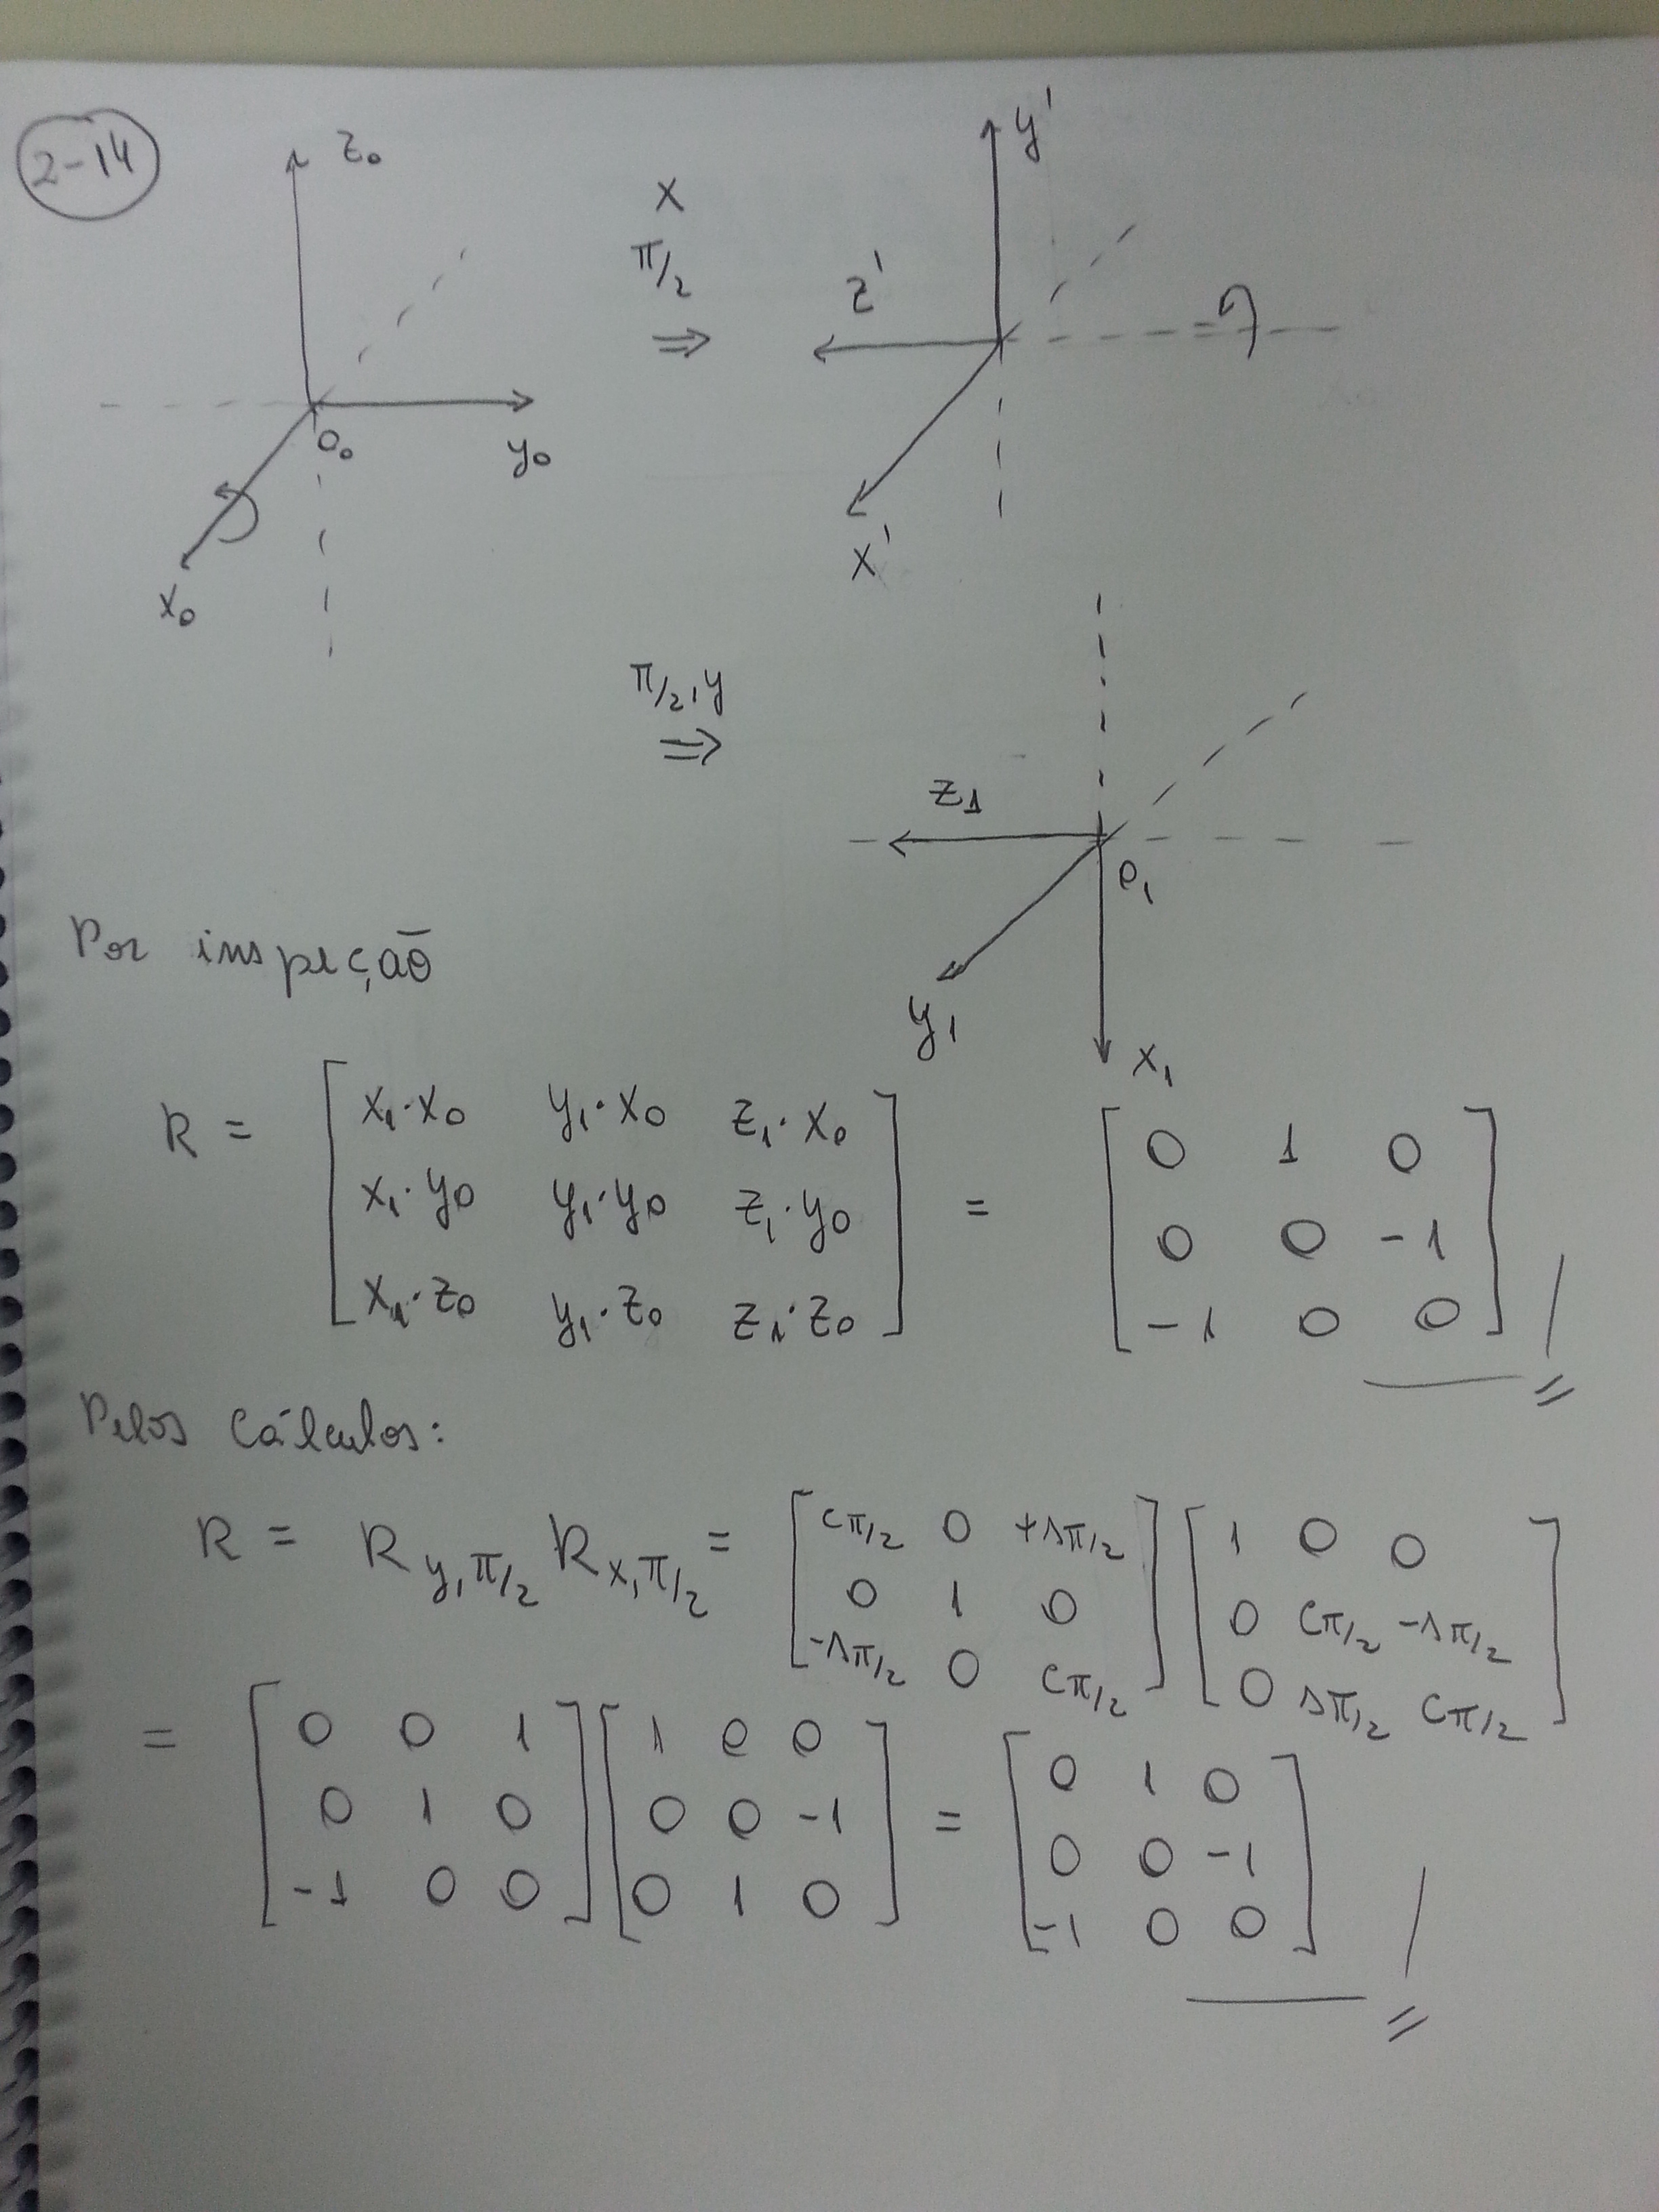 2-14
z₀
y₀
O₀
x₀
x
π/2
⇒
y'
z'
x'
π/2, y
⇒
z₁
O₁
y₁
x₁
Por inspeção
R = [ x₁·x₀ y₁·x₀ z₁·x₀ ] = [ 0 1 0 ]
[ x₁·y₀ y₁·y₀ z₁·y₀ ] [ 0 0 -1 ]
[ x₁·z₀ y₁·z₀ z₁·z₀ ] [ -1 0 0 ]
Pelos cálculos:
R = R y,π/2 R x,π/2 = [ cπ/2 0 +sπ/2 ] [ 1 0 0 ]
[ 0 1 0 ] [ 0 cπ/2 -sπ/2 ]
[ -sπ/2 0 cπ/2 ] [ 0 sπ/2 cπ/2 ]
= [ 0 0 1 ] [ 1 0 0 ] = [ 0 1 0 ]
[ 0 1 0 ] [ 0 0 -1 ] [ 0 0 -1 ]
[ -1 0 0 ] [ 0 1 0 ] [ -1 0 0 ]